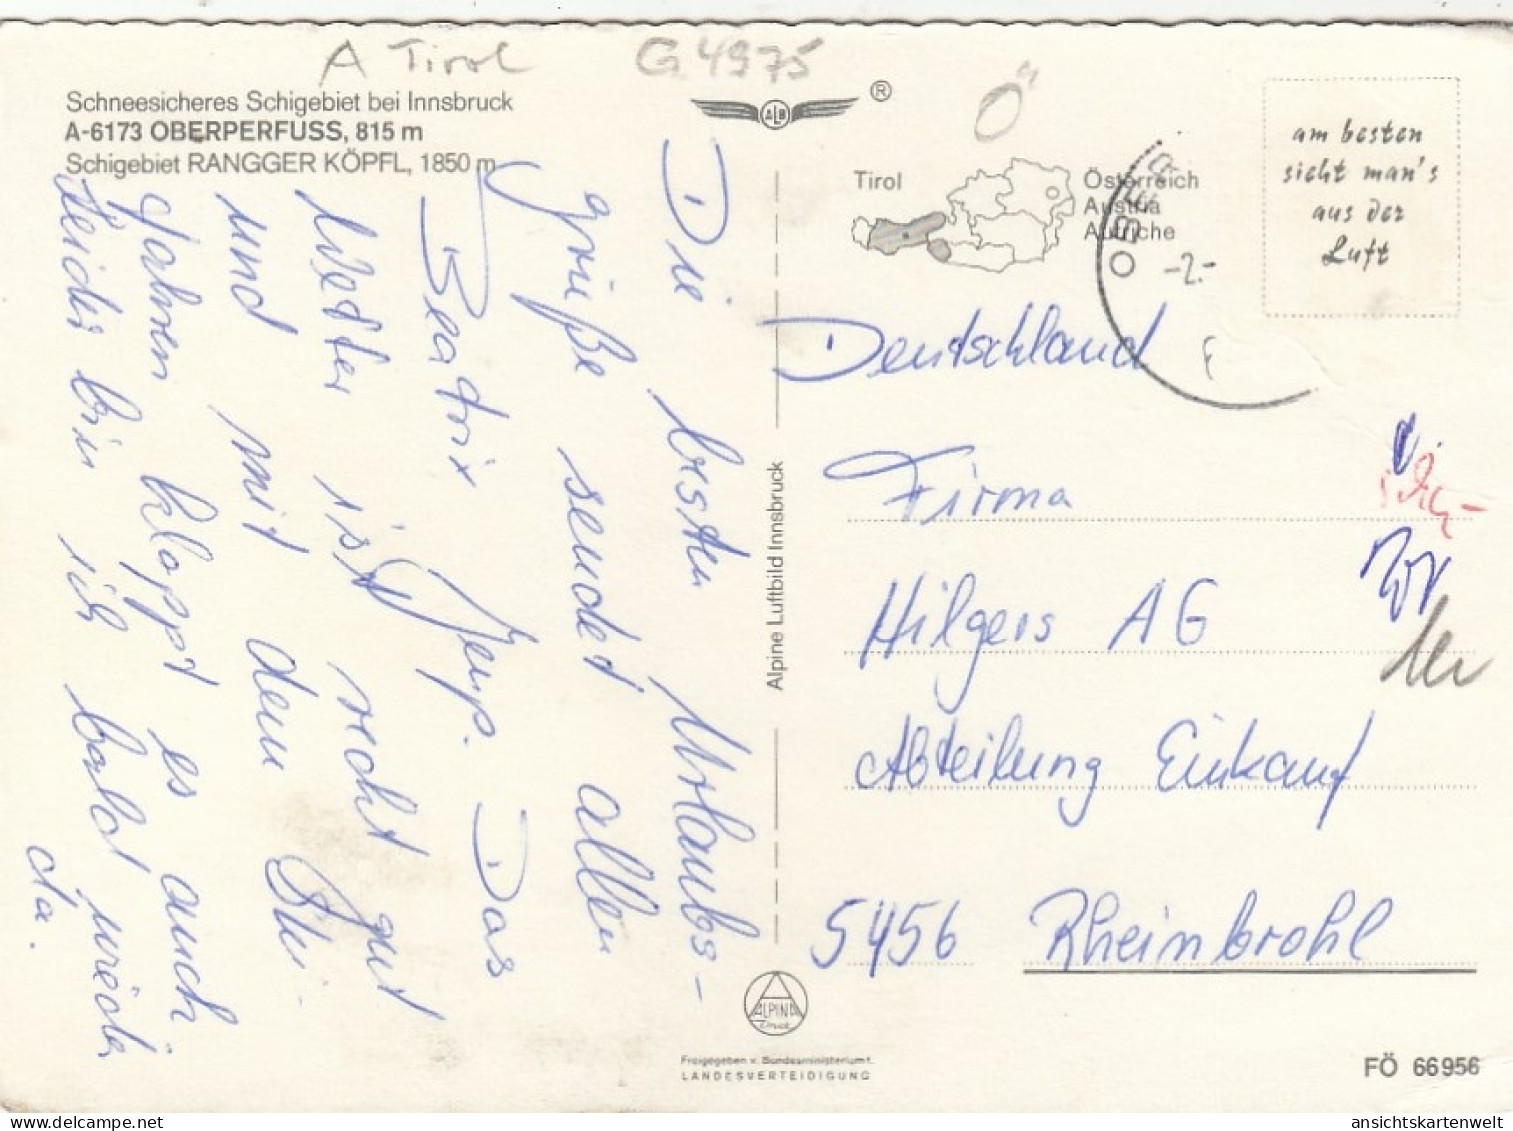 A Tirol
G 4975
Schneesicheres Schigebiet bei Innsbruck
A-6173 OBERPERFUSS, 815 m
Schigebiet RANGGER KÖPFL, 1850 m
Die besten Urlaubs-
grüße sendet allen
Beatrix Jeup. Das
Wetter ist recht gut
und mit dem Ski-
fahren klappt es auch.
Leider bin ich bald wieder
da.
ALB
®
Ö
Tirol
Österreich
Austria
Autriche
am besten
sieht man's
aus der
Luft
-2.-
Deutschland
Firma
Hilgers AG
Abteilung Einkauf
5456 Rheinbrohl
Alpine Luftbild Innsbruck
ALPINA
Druck
Freigegeben v. Bundesministerium f.
LANDESVERTEIDIGUNG
FÖ 66956
ansichtskartenwelt